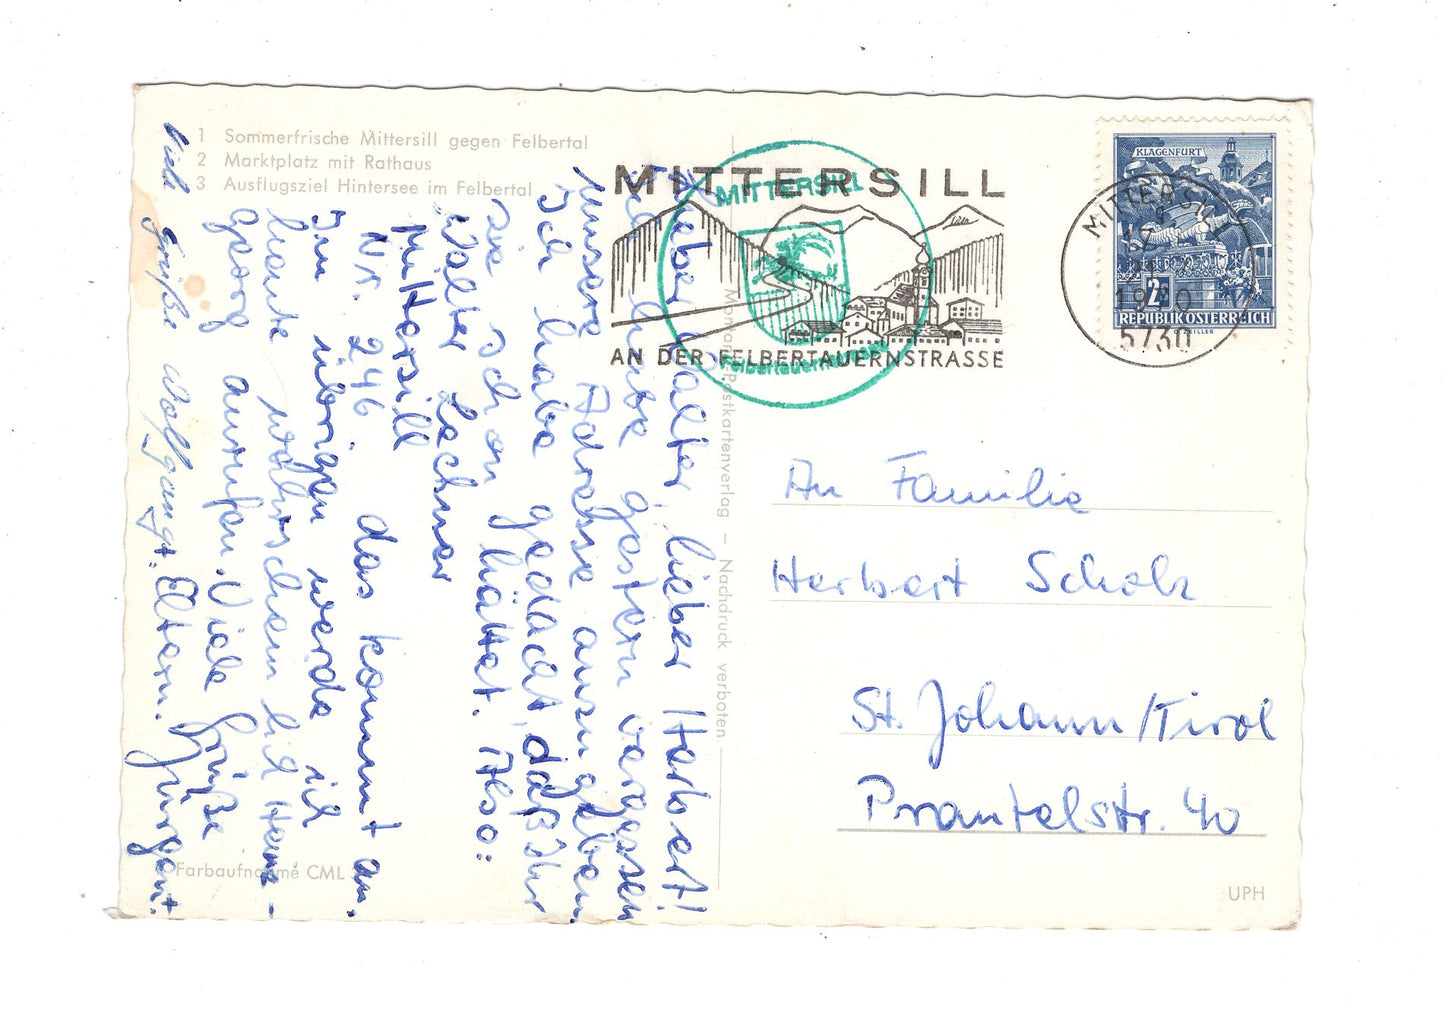 1 Sommerfrische Mittersill gegen Felbertal
2 Marktplatz mit Rathaus
3 Ausflugsziel Hintersee im Felbertal
Lieber Walter, lieber Herbert!
Ich habe gestern vergessen
unsere Adresse anzugeben.
Ich habe gedacht, daß Ihr
sie schon hättet. Also:
Walter Lechner
Mittersill
Nr. 246. das kommt an.
Im übrigen werde ich
heute wahrscheinlich Hans-
georg anrufen. Viele Grüße
Jürgen.
Viele Grüße Wolfgang + Eltern.
Farbaufnahme CML
Postkartenverlag – Nachdruck verboten
MITTERSILL
AN DER FELBERTAUERNSTRASSE
MITTERSILL
Felbertauernstrasse
KLAGENFURT
2
REPUBLIK ÖSTERREICH
MITTERSILL
21
5730
An Familie
Herbert Scholz
St. Johann/Tirol
Prantelstr. 40
UPH